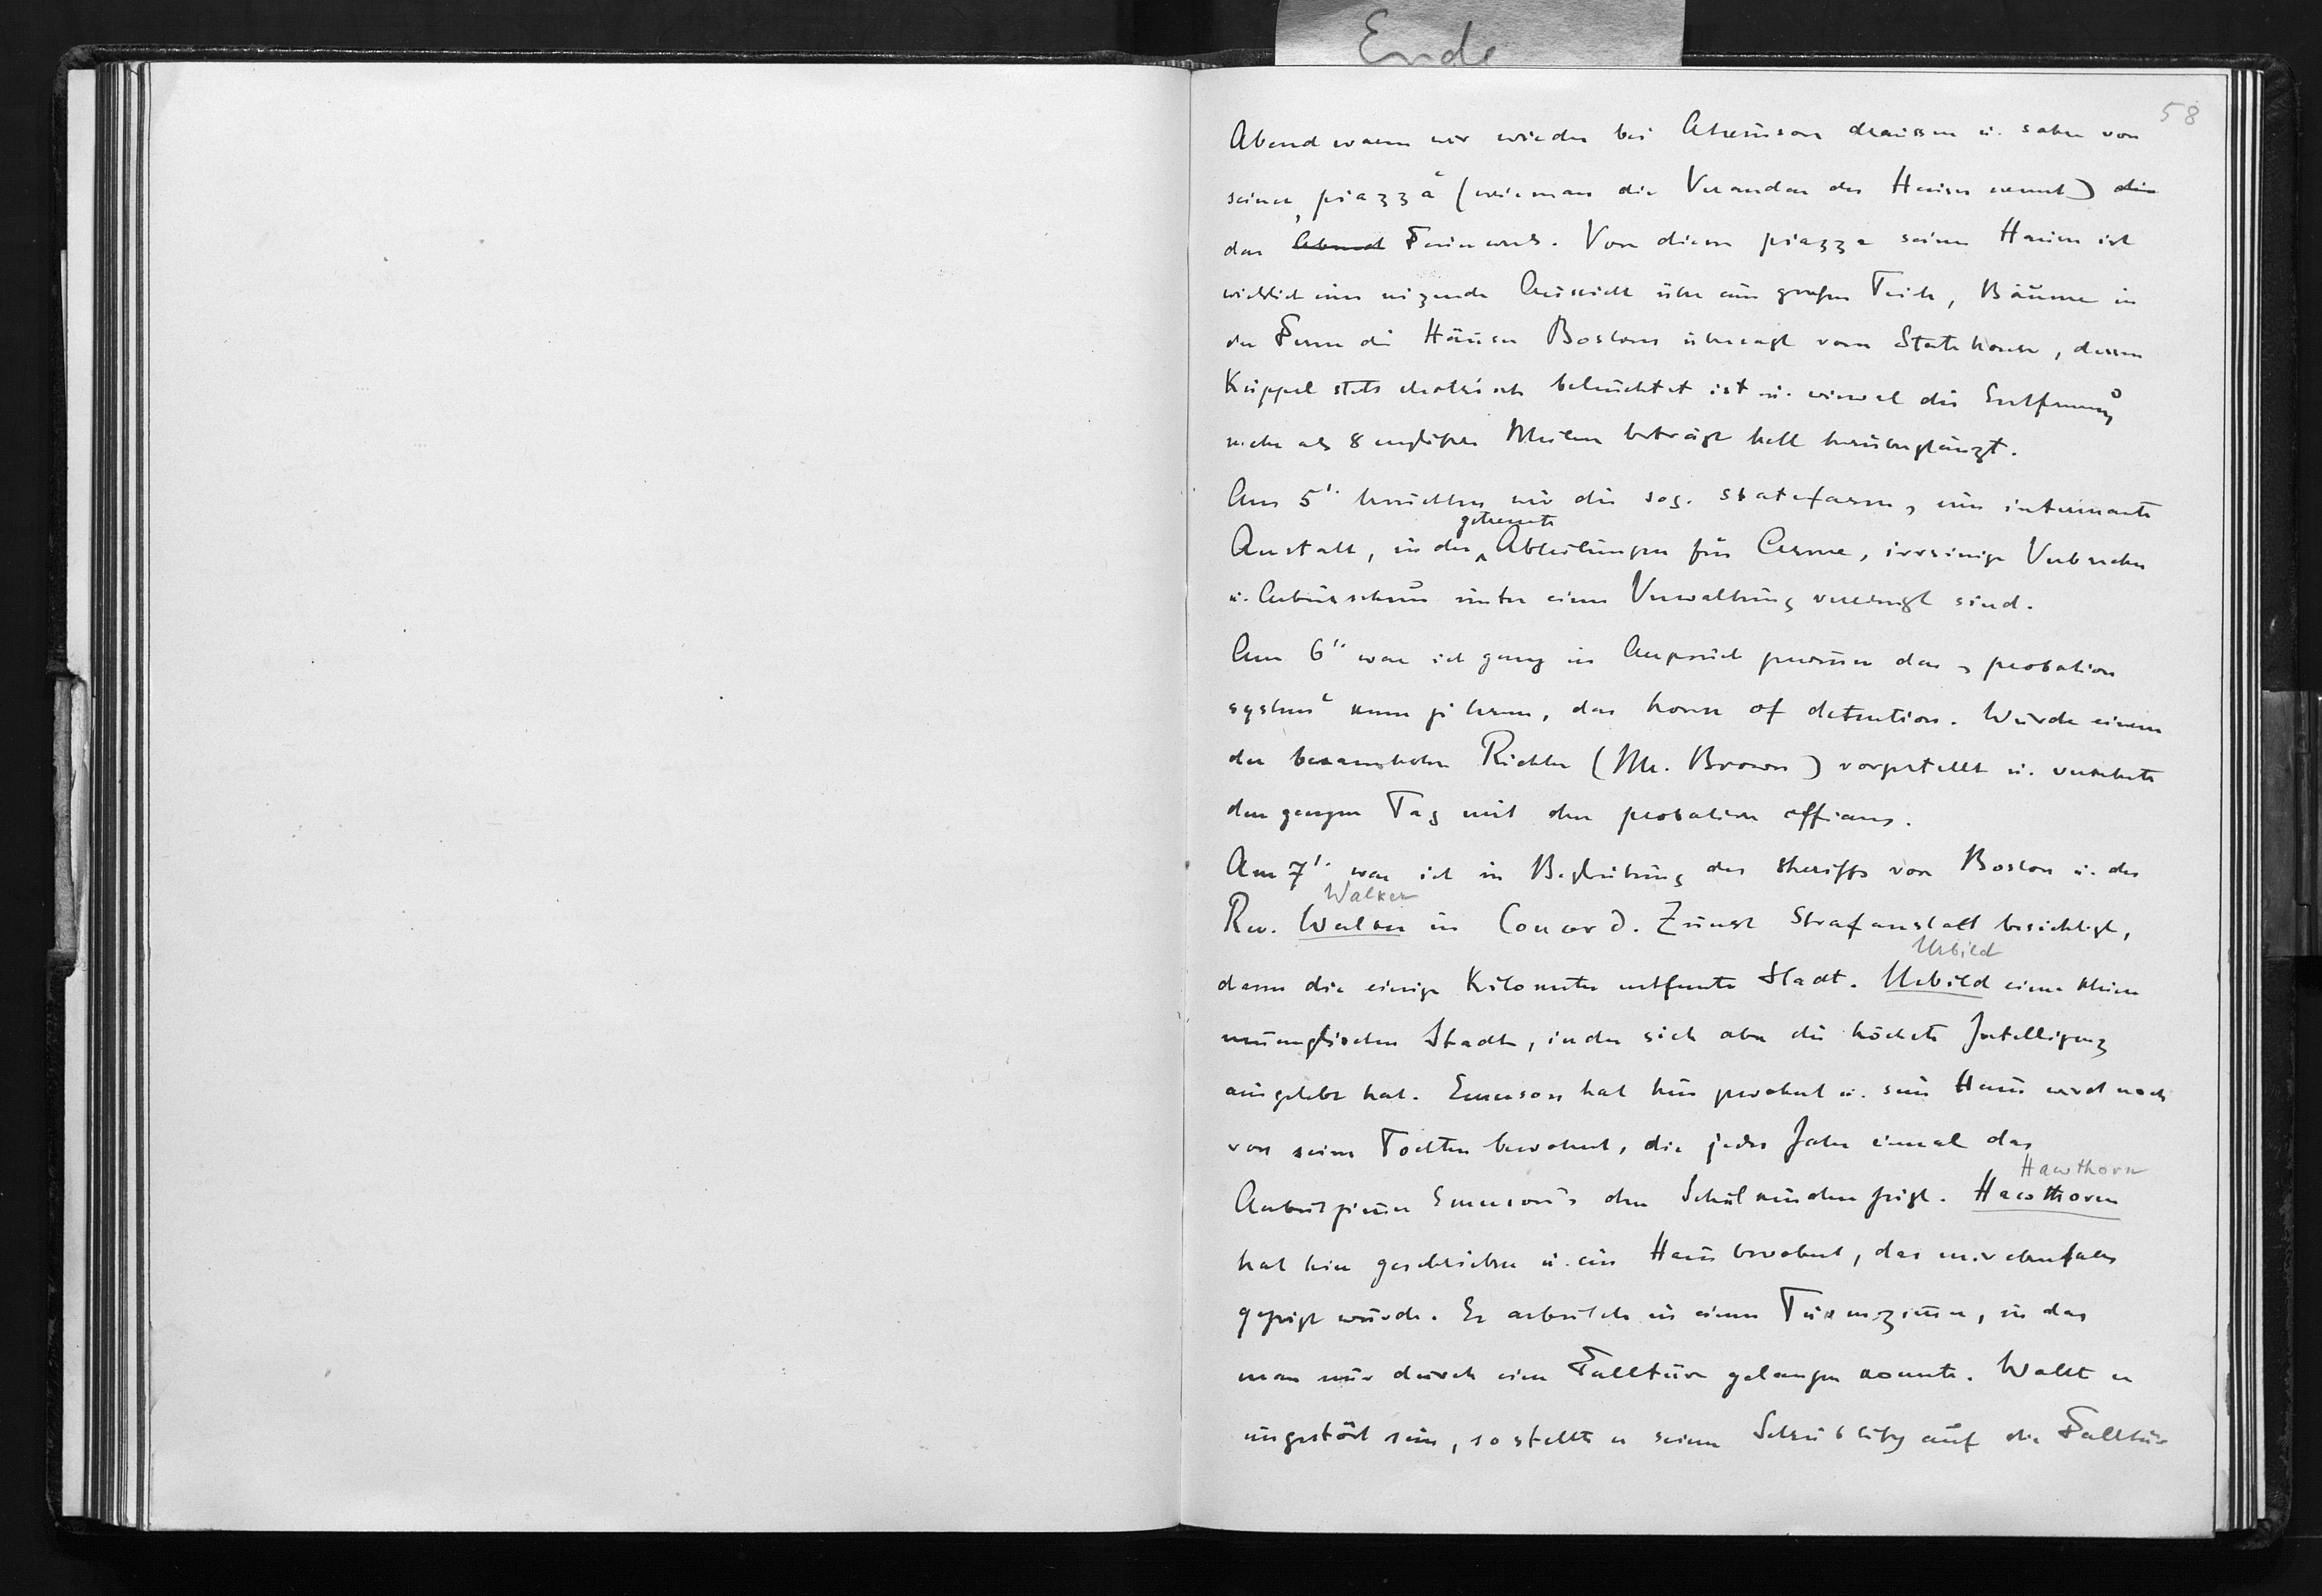 Ende
58
Abend waren wir wieder bei Atkinson draussen u. sahen von
seiner „piazza“ (wie man die Veranden der Häuser nennt) die
das Abend Feuerwerk. Von dieser piazza seines Hauses ist
wirklich eine reizende Aussicht über ein großen Teich, Bäume in
der Ferne die Häuser Bostons überragt vom Statehouse, dessen
Kuppel stets elektrisch beleuchtet ist u. wiewol die Entfernung
mehr als 8 englischen Meilen beträgt hell herüberglänzt.
Am 5t. besuchten wir die sog. statefarm, eine interessante
Anstalt, in der getrennte Abteilungen für Arme, irrsinige Verbrecher
u. Arbeitsscheue unter einer Verwaltung vereinigt sind.
Am 6t war ich ganz in Anspruch genommen das „probation
system“ kennen zu lernen, das house of detention. Wurde einem
der bekanntesten Richter (Mr. Brown) vorgestellt u. verkehrte
den ganzen Tag mit den probation officers.
Am 7t. war ich in Begleitung des sheriffs von Boston u. des
Walker
Rev. Walker in Concord. Zuerst Strafanstalt besichtigt,
Urbild
dann die einige Kilometer entfernte Stadt. Urbild einer kleinen
neuenglischen Stadt, in der sich aber die höchste Intelligenz
ausgelebt hat. Emerson hat hier gewohnt u. sein Haus wird noch
von seiner Tochter bewohnt, die jedes Jahr einmal das
Hawthorn
Arbeitszimmer Emerson's den Schulkindern zeigt. Hawthorn
hat hier geschrieben u. ein Haus bewohnt, das mir ebenfalls
gezeigt wurde. Er arbeitete in einem Turmzimmer, in das
man nur durch eine Falltüre gelangen konnte. Wollt er
ungestört sein, so stellte er seinen Schreibsitz auf die Falltür